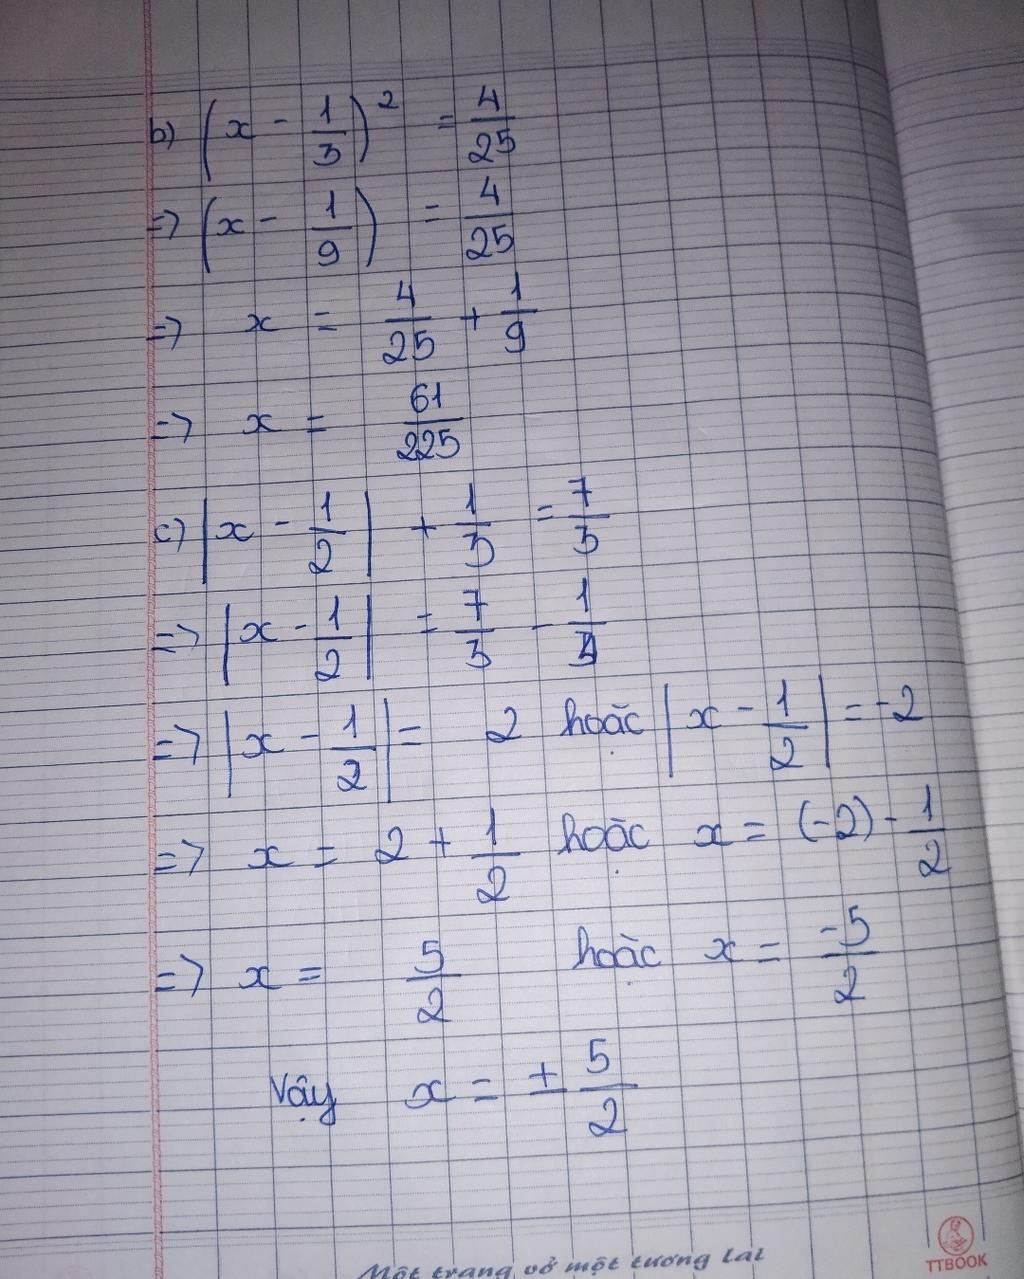 b) (x - 1/3)² = 4/25
=> (x - 1/9) = 4/25
=> x = 4/25 + 1/9
=> x = 61/225
c) |x - 1/2| + 1/3 = 7/3
=> |x - 1/2| = 7/3 - 1/3
=> |x - 1/2| = 2 hoặc |x - 1/2| = -2
=> x = 2 + 1/2 hoặc x = (-2) - 1/2
=> x = 5/2 hoặc x = -5/2
Vậy x = ± 5/2
Một trang vở một tương lai
TTBOOK